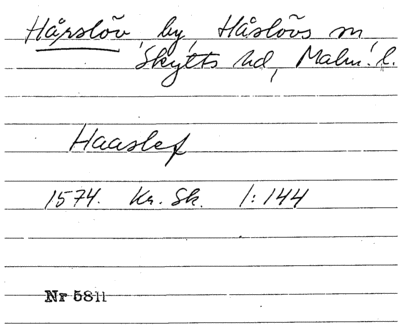 Hårslöv, by, Håslövs sn,
Skytts hd, Malm. l.
Haaslef
1574. Kr. Sk. 1:144
Nr 5811